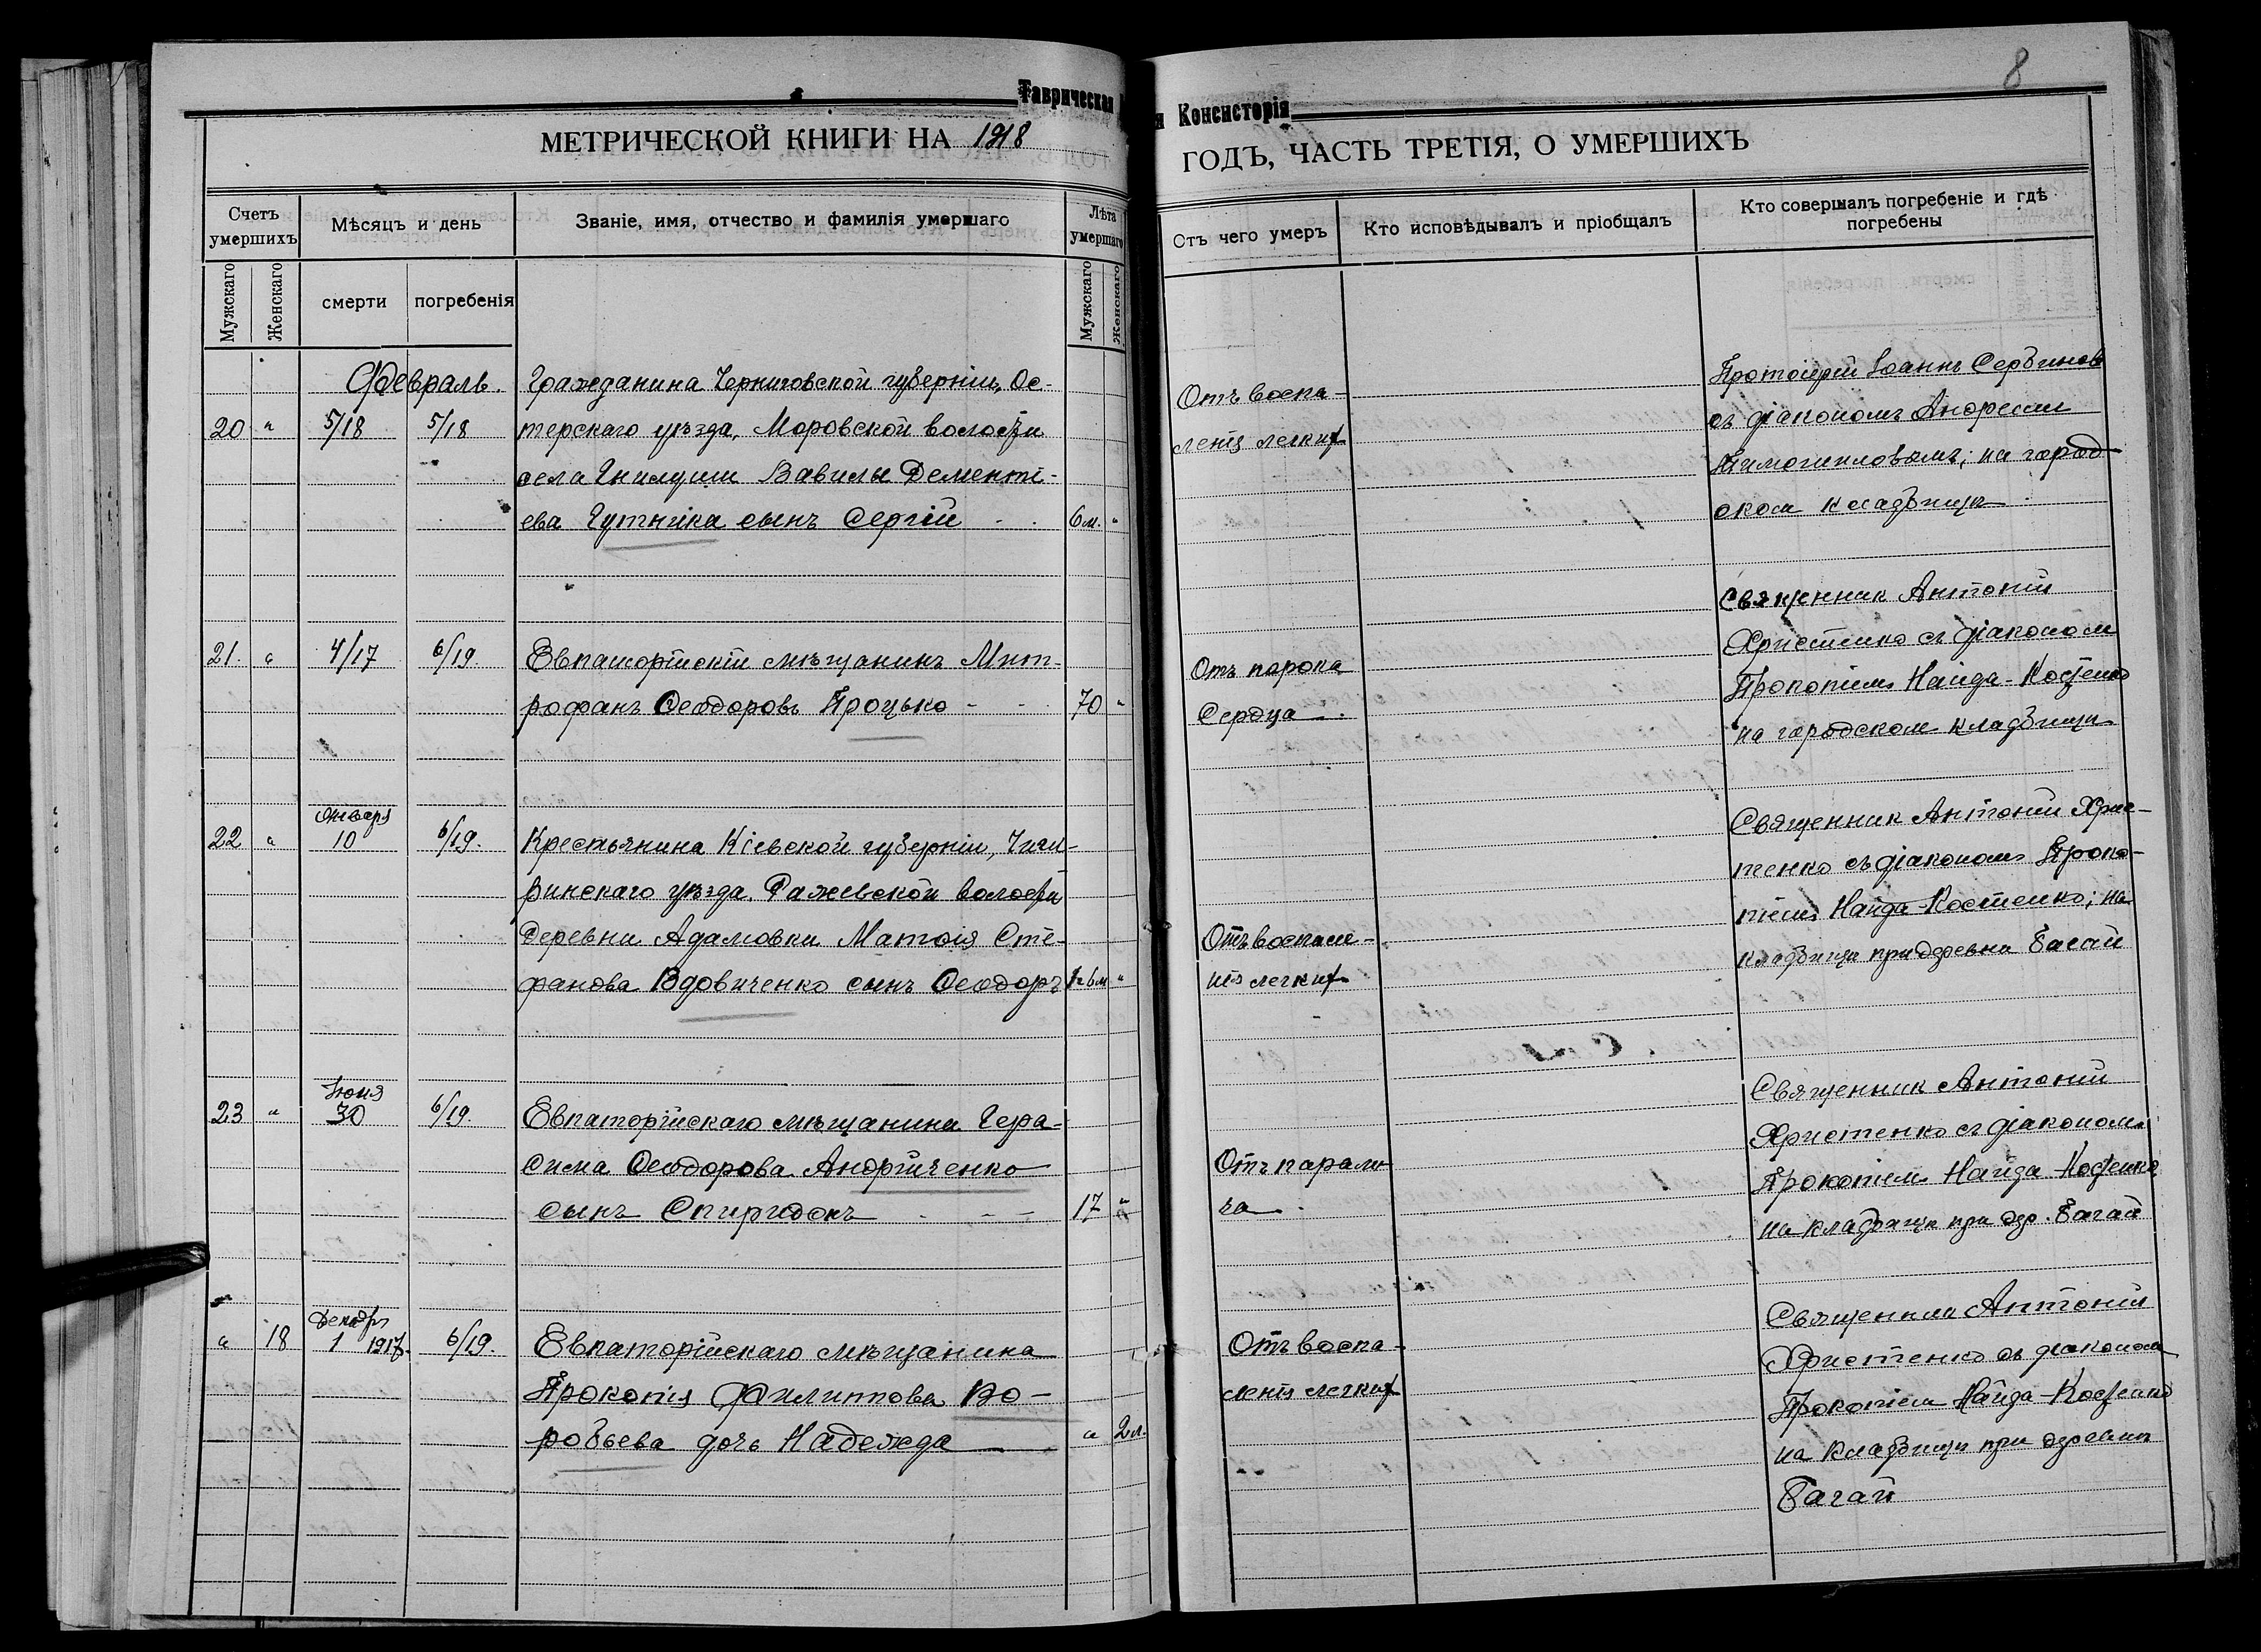 8
Таврическая
Консисторія
МЕТРИЧЕСКОЙ КНИГИ НА 1918
ГОДЪ, ЧАСТЬ ТРЕТІЯ, О УМЕРШИХЪ
Счетъ умершихъ
Мѣсяцъ и день
Званіе, имя, отчество и фамилія умершаго
Лѣта умершаго
Отъ чего умеръ
Кто исповѣдывалъ и пріобщалъ
Кто совершалъ погребеніе и гдѣ погребены
Мужскаго
Женскаго
смерти
погребенія
Мужскаго
Женскаго
Февраль.
20 " 5/18 5/18
Гражданина Черниговской губерніи, Ос-
терскаго уѣзда, Моровской волости
села Гнилуши Вавилы Дементі-
ева Гутніка сынъ Сергій
6 м. "
Отъ воспа-
ленія легких
Протоіерей Іоаннъ Сербинов
съ діакономъ Андреем
на город-
ском кладбищѣ
21. " 4/17 6/19.
Евпаторійскій мѣщанинъ Мит-
рофанъ Ѳеодоровъ Процько
70 "
Отъ порока
Сердца
Священник Антоній
Христенко съ діаконом
Прокопіем Найда-Костенко
на городском кладбищѣ
Января
22 " 10 6/19.
Крестьянина Кіевской губерніи, Чиги-
ринскаго уѣзда, волости
деревни Адамовки Матѳія Сте-
фанова Вдовиченко сынъ Ѳеодоръ
1 г 6 м "
Отъ воспале-
нія легких
Священник Антоній Хрис-
тенко съ діаконом Проко-
піем Найда-Костенко; на
кладбищѣ при деревни Багай
Іюня
23 " 30 6/19.
Евпаторійскаго мѣщанина Гера-
сима Ѳеодорова Андрійченко
сынъ Спиридонъ
17 "
Отъ парали-
ча
Священник Антоній
Христенко съ діаконом
Прокопіем Найда-Костенко
на кладбищѣ при дер. Багай
Декабр
" 18 1 1917. 6/19.
Евпаторійскаго мѣщанина
Прокопія Филиппова Во-
робьева дочь Надежда
" 2 л.
Отъ воспа-
ленія легких
Священник Антоній
Христенко съ діаконом
Прокопіем Найда-Костенко
на кладбищѣ при деревни
Багай